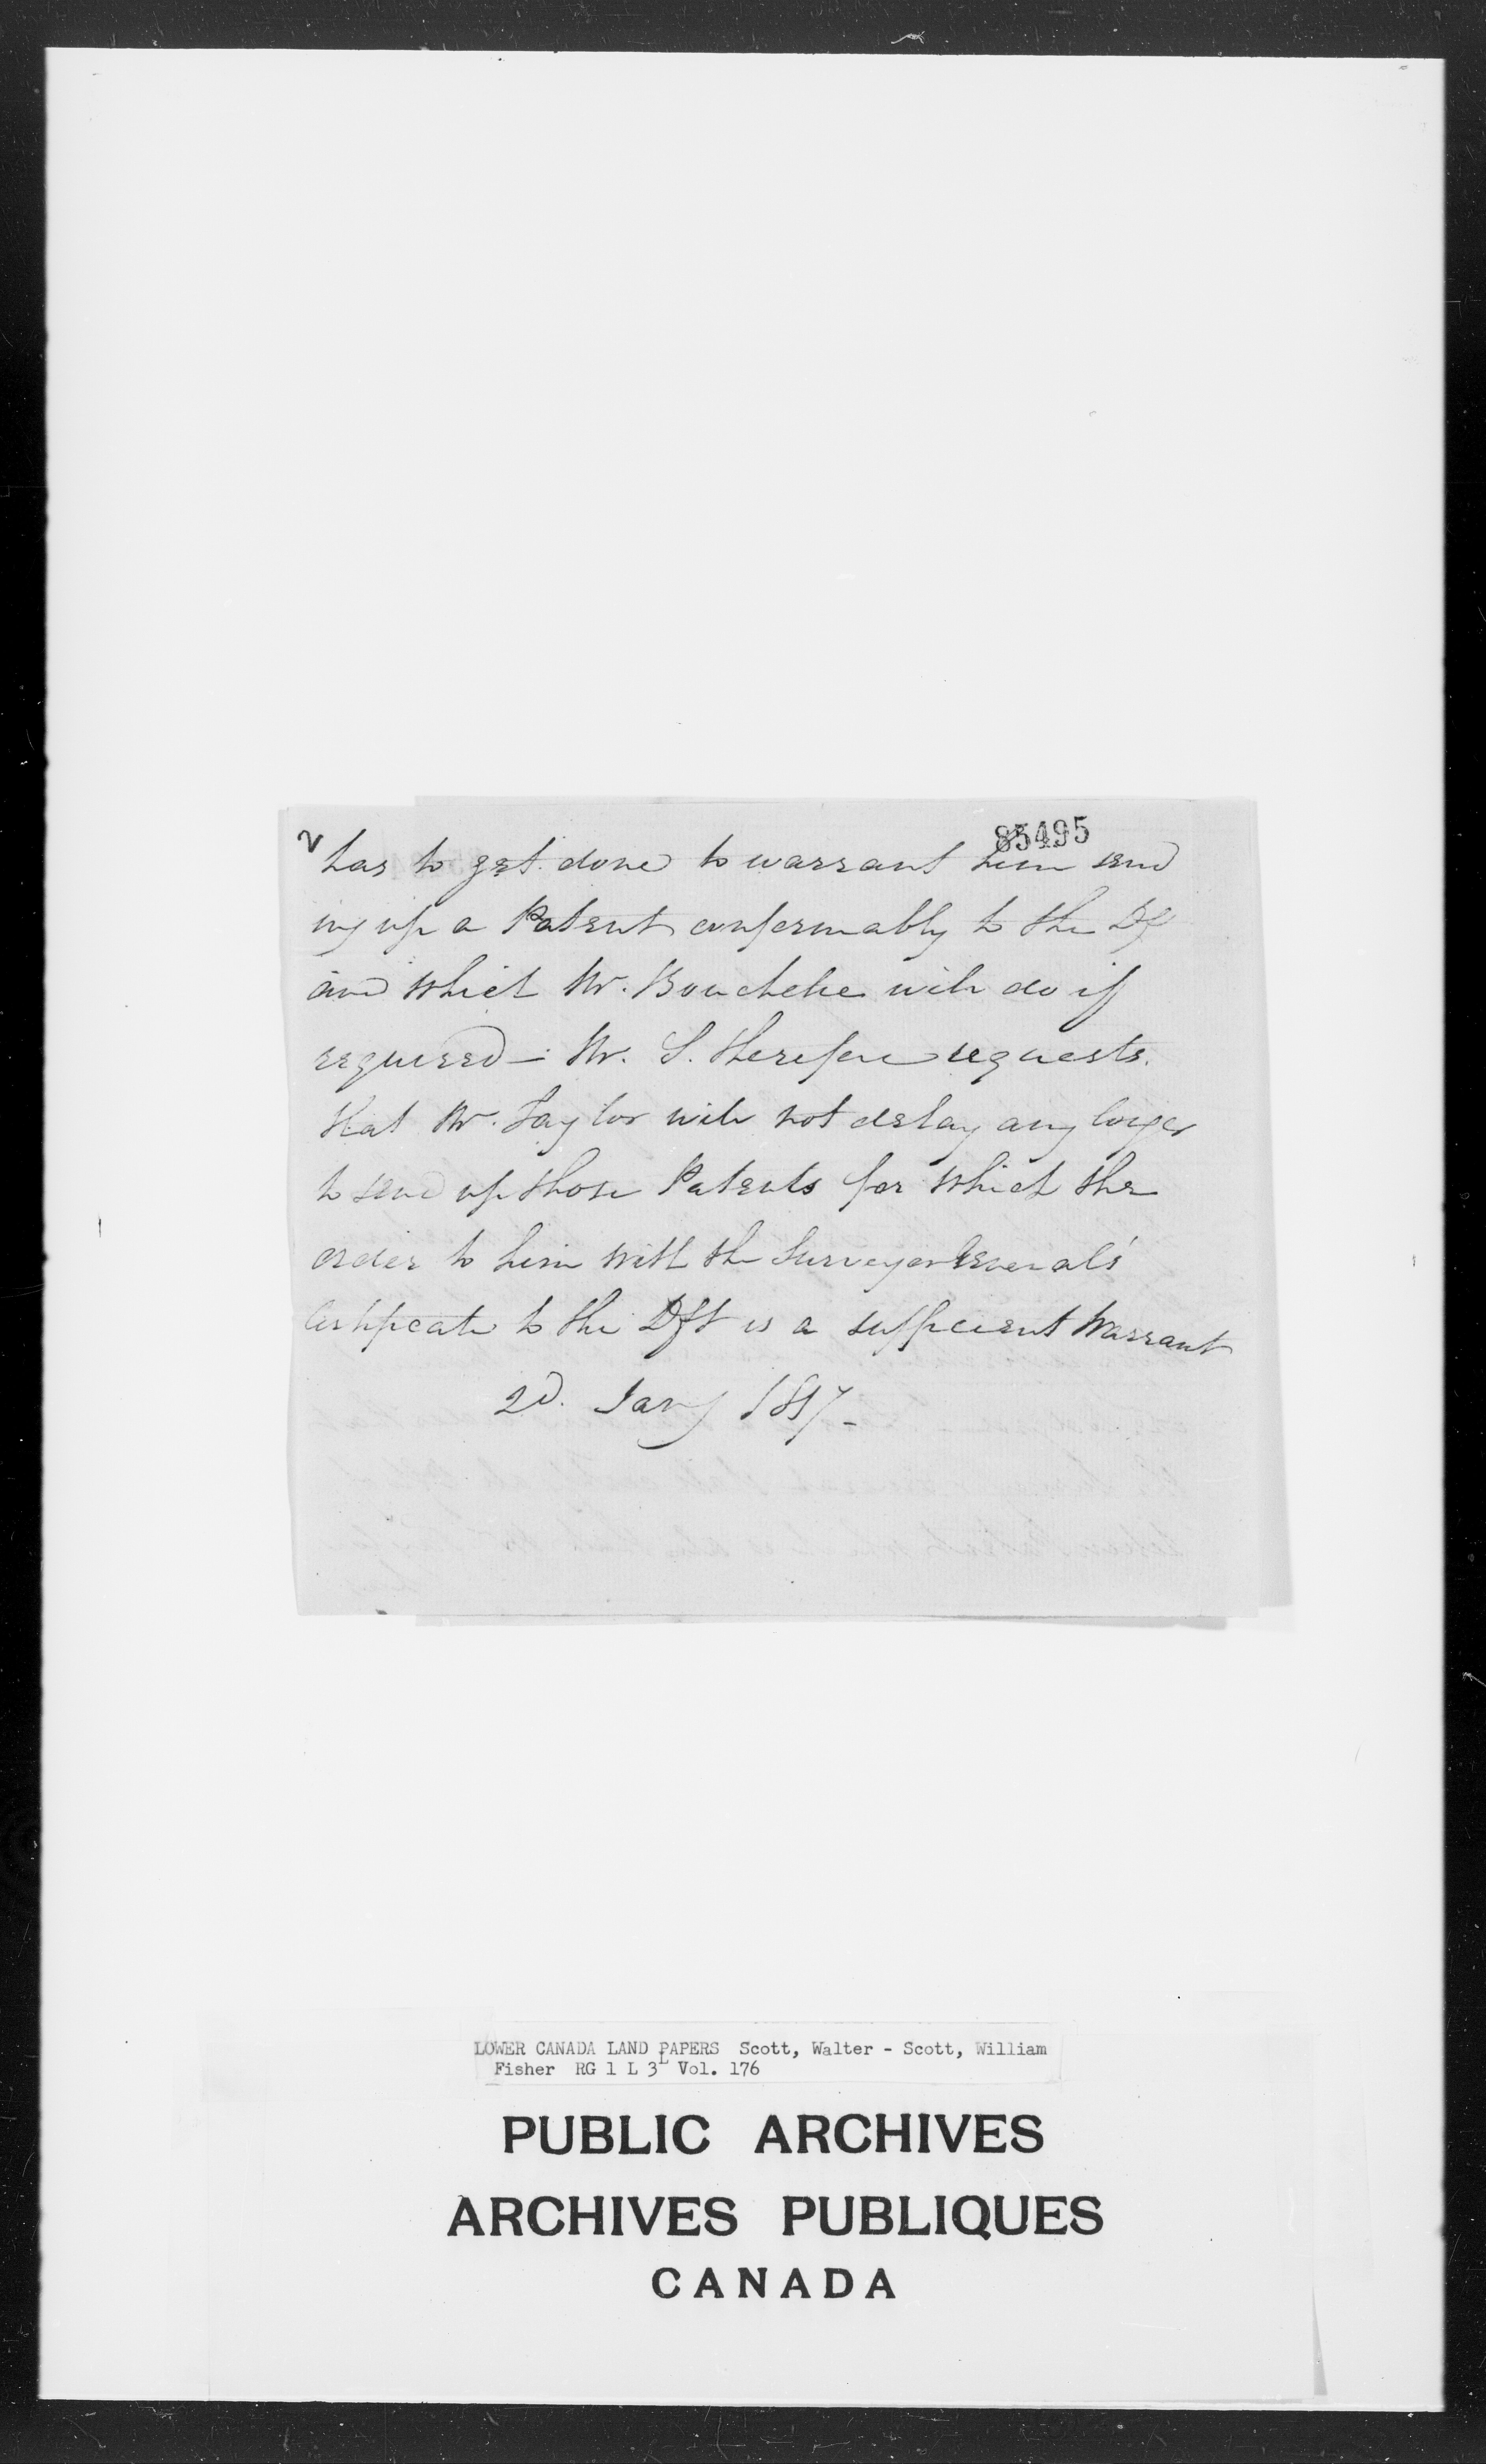 2
85495
has to get done to warrant him send
ing up a Patent conformably to the Dft
and which Mr. Bouchette will do if
required – Mr. S. therefore requests
that Mr. Taylor will not delay any longer
to send up those Patents for which the
order to him with the Surveyor Generals'
Certificate to the Dft is a sufficient Warrant
2d. Jany 1817 –
LOWER CANADA LAND PAPERS Scott, Walter - Scott, William
Fisher RG 1 L 3L Vol. 176
PUBLIC ARCHIVES
ARCHIVES PUBLIQUES
CANADA